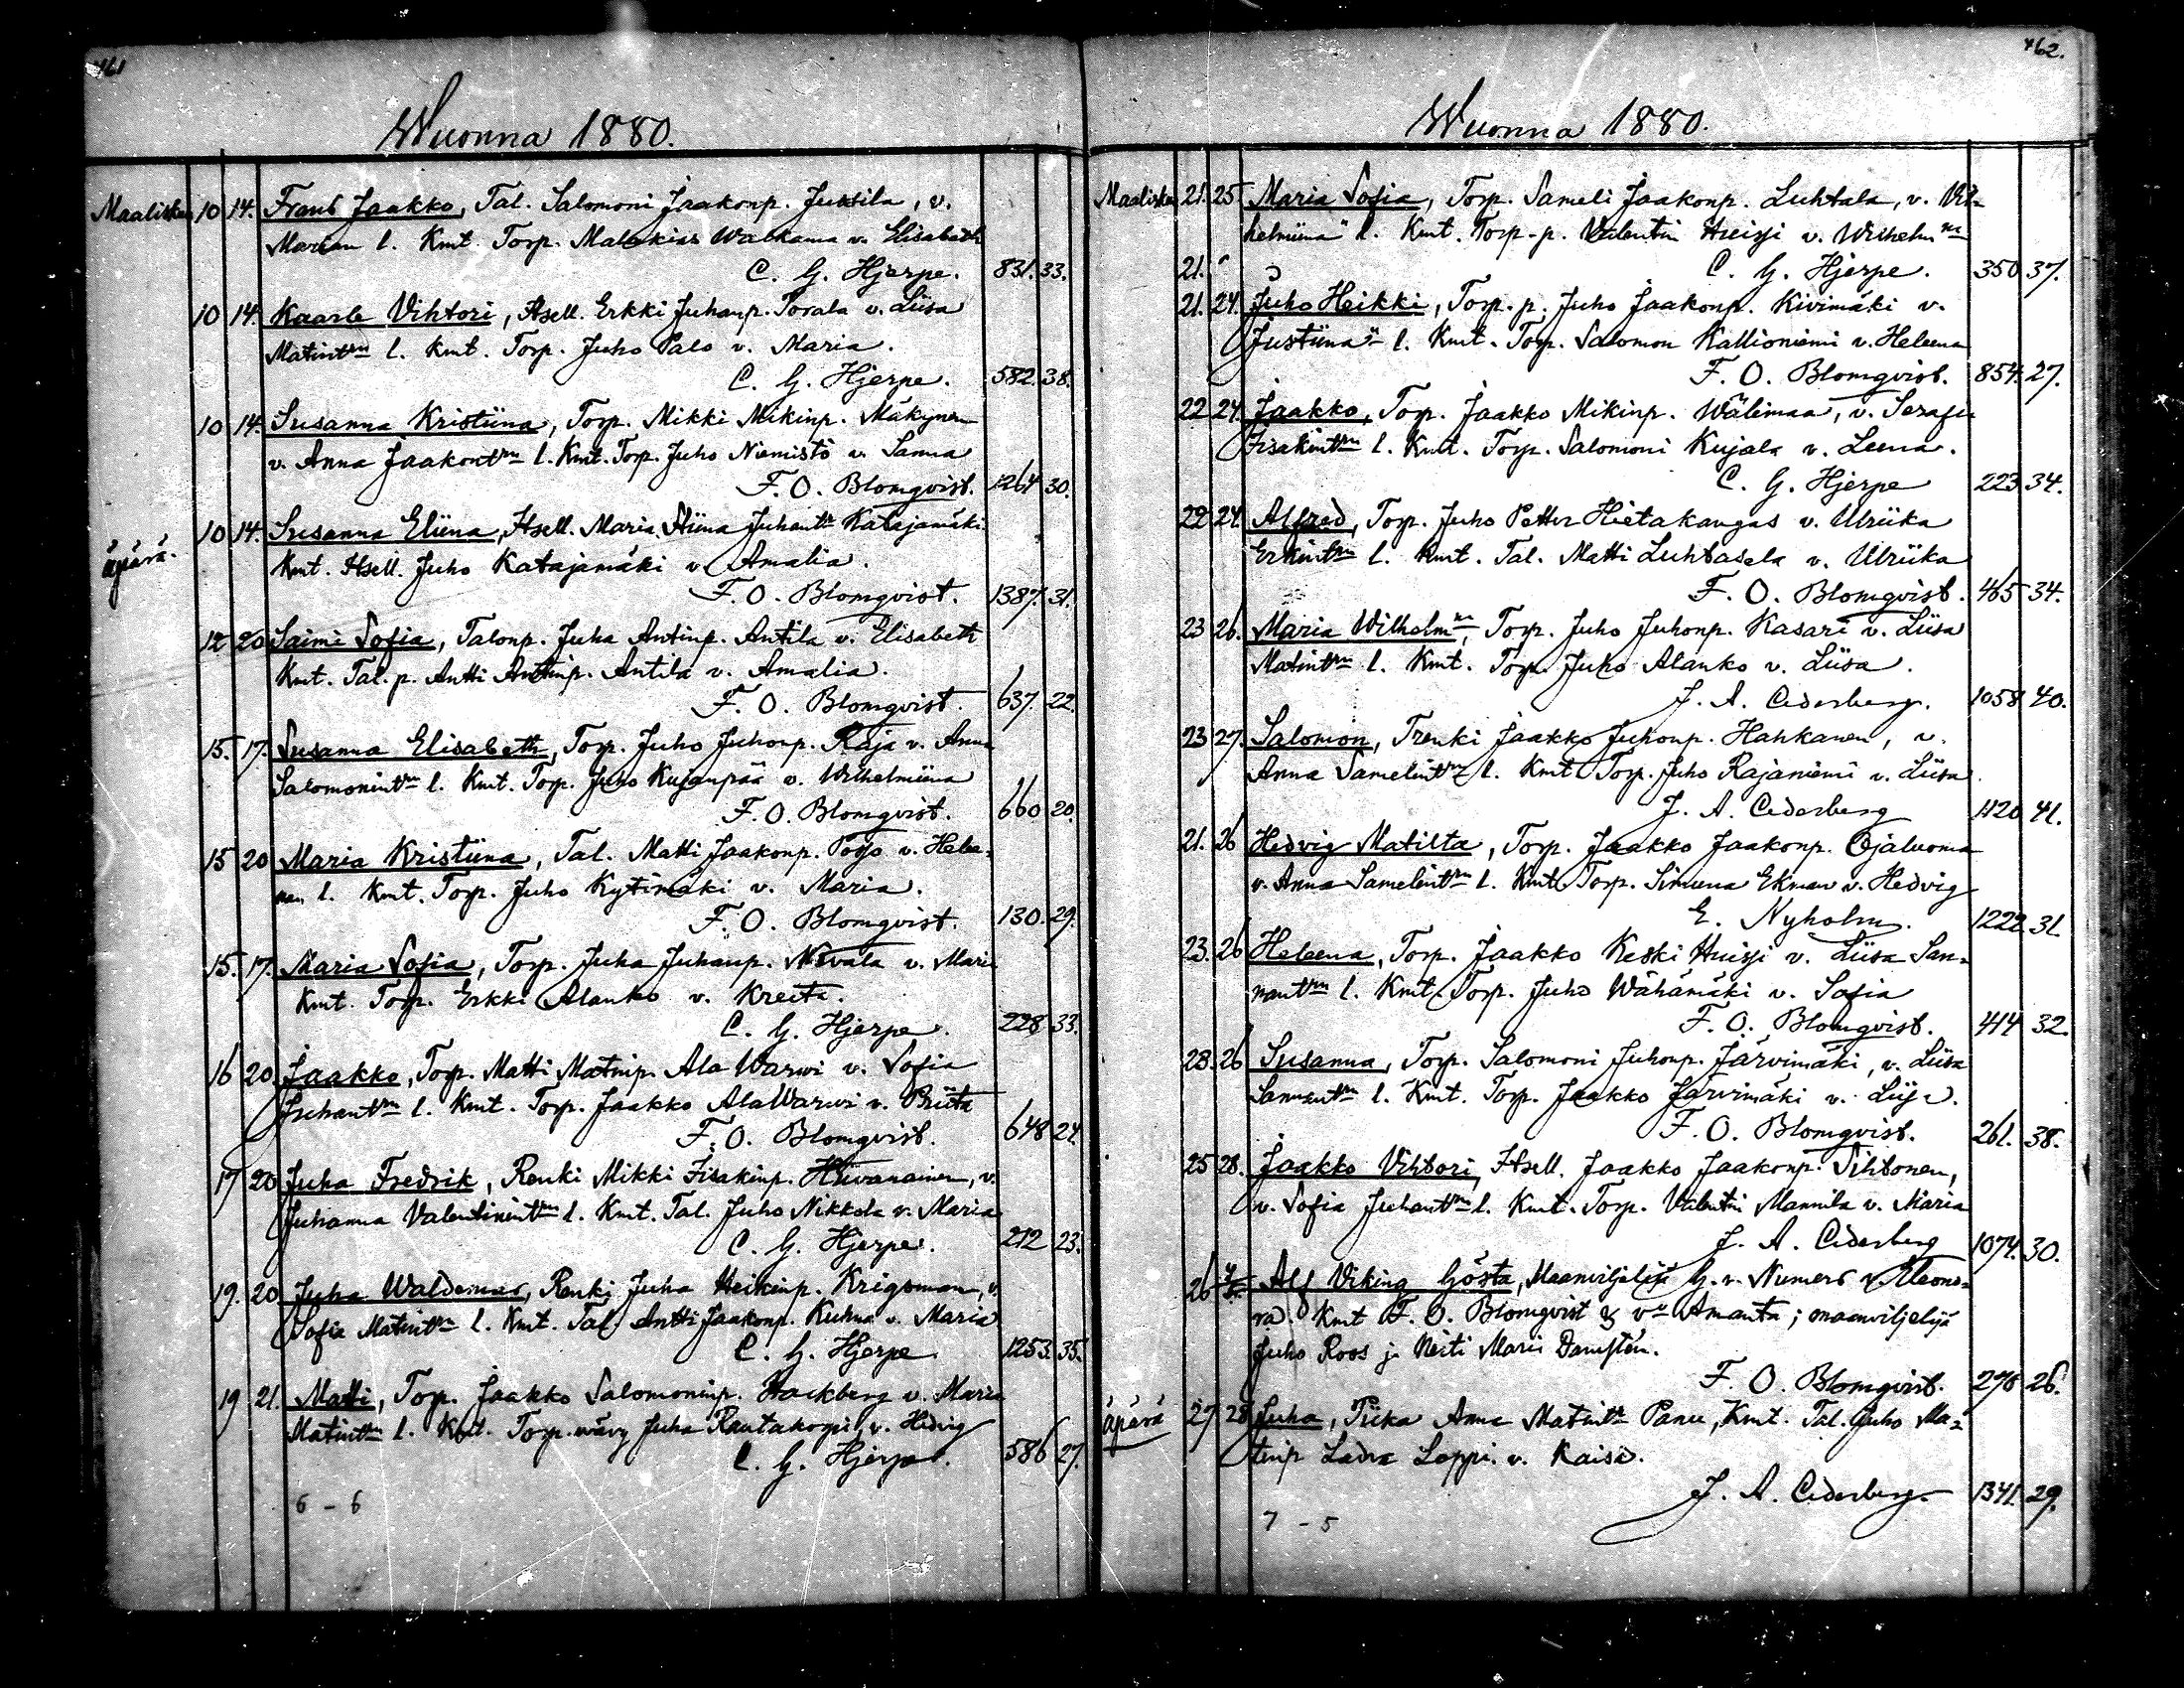 461
Wuonna 1880.
Maalisku 10 14. Frans Jaakko, Tal. Salomoni Jaakonp. Jussila, v.
Marian l. Kmt. Torp. Malakias Walkama v. Elisabeth
C. G. Hjerpe. 831. 33.
10 14. Kaarle Vihtori, Itsell. Erkki Juhanp. Porala v. Liisa
Matintm l. Kmt. Torp. Juho Palo v. Maria.
C. G. Hjerpe. 582. 38.
10 14. Susanna Kristiina, Torp. Mikki Mikinp. Mäkynen
v. Anna Jaakontm l. Kmt. Torp. Juho Niemistö v. Sanna
F. O. Blomqvist. 1264 30.
äpärä. 10 14. Susanna Eliina, Itsell. Maria Stiina Juhantr Katajamäki
Kmt. Itsell. Juho Katajamäki v. Amalia.
F. O. Blomqvist. 1387. 31.
12 20 Saimi Sofia, Talonp. Juha Antinp. Antila v. Elisabeth
Kmt. Tal. p. Antti Anttinp. Antila v. Amalia.
F. O. Blomqvist. 637. 22.
15. 17. Susanna Elisabeth, Torp. Juho Juhonp. Raja v. Anna
Salomonintm l. Kmt. Torp. Juho Kujanpää v. Wilhelmiina
F. O. Blomqvist. 660 20.
15 20 Maria Kristiina, Tal. Matti Jaakonp. Pojo v. Hele-
nan l. Kmt. Torp. Juho Kytimäki v. Maria.
F. O. Blomqvist. 130. 29.
15. 17. Maria Sofia, Torp. Juha Juhanp. Nevala v. Maria
Kmt. Torp. Erkki Alanko v. Kreeta.
C. G. Hjerpe. 228 33.
16 20 Jaakko, Torp. Matti Matinp. Ala Warwi v. Sofia
Juhantm l. Kmt. Torp. Jaakko AlaWarwi v. Priita
F. O. Blomqvist. 648 24.
17 20 Juha Fredrik, Renki Mikki Iisakinp. Hiivanainen, v.
Juhanna Valentinintm l. Kmt. Tal. Juho Nikkola v. Maria
C. G. Hjerpe. 212 23.
19. 20 Juha Waldemar, Renki Juha Heikinp. Krigsman, v.
Sofia Matintm l. Kmt. Tal. Antti Jaakonp. Kuhna v. Maria
C. G. Hjerpe 1253. 35.
19 21. Matti, Torp. Jaakko Salomoninp. Hackberg v. Maria
Matintm l. Kmt. Torp. wävy Juha Rautakorpi, v. Hedvig
C. G. Hjerpe. 586 27.
6 - 6
462.
Wuonna 1880.
Maalisku 21. 25 Maria Sofia, Torp. Sameli Jaakonp. Luhtala, v. Wil-
helmiina l. Kmt. Torp-p. Valentin Huissi v. Wilhelmna
21. C. G. Hjerpe. 350 37.
21. 24. Juho Heikki, Torp. p. Juho Jaakonp. Kivimäki v.
Justiina l. Kmt. Torp. Salomon Kallioniemi v. Heleena
F. O. Blomqvist. 854. 27.
22 24 Jaakko, Torp. Jaakko Mikinp. Wälimaa, v. Serafia
Iisakintm l. Kmt. Torp. Salomoni Kujala v. Leena.
C. G. Hjerpe 223 34.
22 24 Alfred, Torp. Juho Petter Hietakangas v. Ulriika
Erkintm l. Kmt. Tal. Matti Luhtasela v. Ulriika
F. O. Blomqvist. 465 34.
23 26. Maria Wilhelmna, Torp. Juho Juhonp. Kasari v. Liisa
Matintm l. Kmt. Torp. Juho Alanko v. Liisa.
J. A. Cederberg. 1058 40.
23 27. Salomon, Trenki Jaakko Juhonp. Hahkanen, v.
Anna Samelintm l. Kmt. Torp. Juho Rajaniemi v. Liisa.
J. A. Cederberg 1120 41.
21. 26 Hedvig Matilta, Torp. Jaakko Jaakonp. Ojaluoma
v. Anna Samelintm l. Kmt. Torp. Simuna Ekman v. Hedvig
E. Nyholm. 1222 31.
23. 26 Heleena, Torp. Jaakko Keski Huissi v. Liisa San-
nantm l. Kmt. Torp. Juho Wähämäki v. Sofia
F. O. Blomqvist. 444 32.
23. 26 Susanna, Torp. Salomoni Juhonp. Järvimäki, v. Liisa
l. Kmt. Torp. Jaakko Järvimäki v. Liisa.
F. O. Blomqvist. 261. 38.
25 28. Jaakko Vihtori, Itsell. Jaakko Jaakonp. Sihtonen,
v. Sofia Juhantm l. Kmt. Torp. Valentin Mannila v. Maria
J. A. Cederberg 1074. 30.
26 Alf Viking Gösta, Maanviljelijä G. v. Numers v. Eleono-
ra. Kmt F. O. Blomqvist & vu Amanta; maanviljelijä
Juho Roos ja Neiti Marie Damsten.
F. O. Blomqvist. 276 26.
äpärä 27 28 Juha, Piika Anna Matintr Panu, Kmt. Tal. Juho Ma-
tinp Ladva Loppi. v. Kaisa.
J. A. Cederberg. 1341. 29.
7 - 5